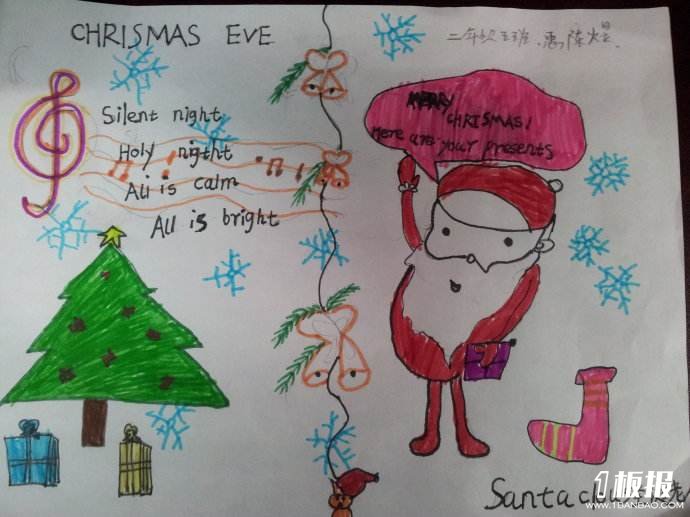 CHRISMAS EVE
二年级五班
Silent night
Holy night
All is calm
All is bright
MERRY
CHRISMAS!
Here are your presents
Santa
1板报
WWW.1BANBAO.COM